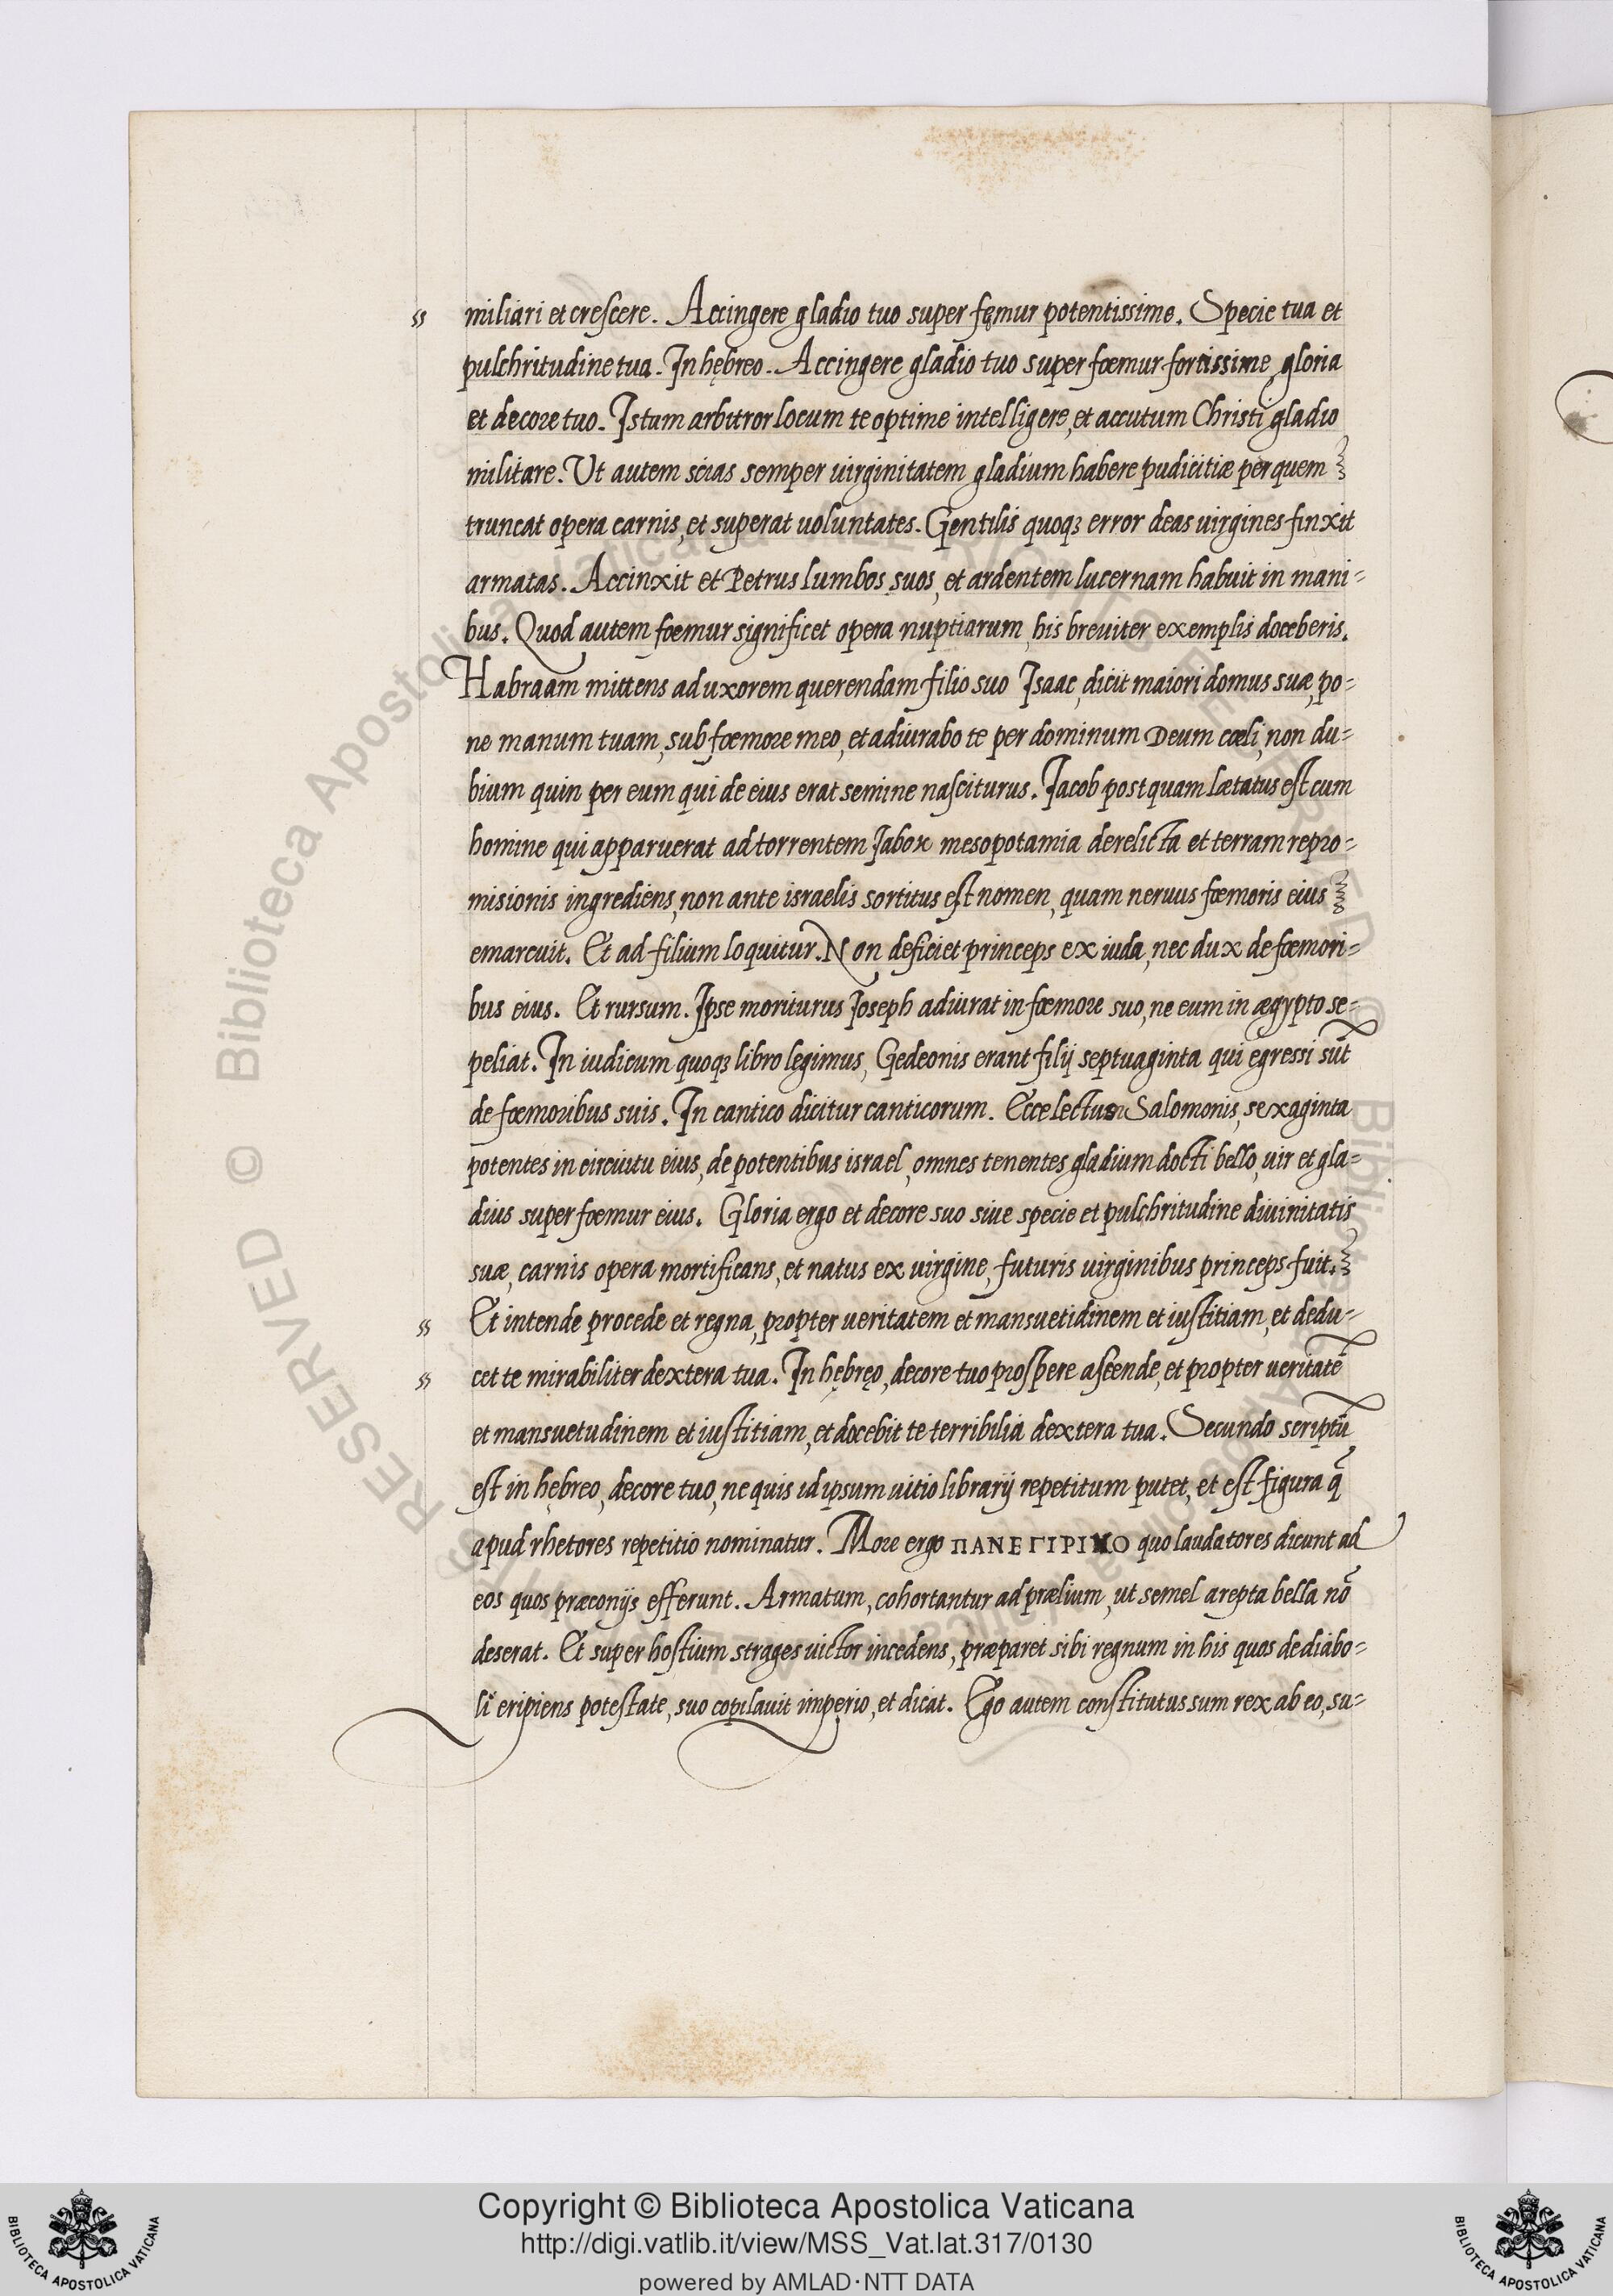 miliari et crescere. Accingere gladio tuo super fęmur potentissime. Specie tua et
pulchritudine tua. In hębreo. Accingere gladio tuo super fœmur fortissime, gloria
et decore tuo. Istum arbitror locum te optime intelligere, et accutum Christi gladio
militare. Ut autem scias semper virginitatem gladium habere pudicitiæ per quem
truncat opera carnis, et superat uoluntates. Gentilis quoqꝫ error deas uirgines finxit
armatas. Accinxit et Petrus lumbos suos, et ardentem lucernam habuit in mani=
bus. Quod autem fœmur significet opera nuptiarum, his breuiter exemplis doceberis.
Habraam mittens ad uxorem querendam filio suo Isaac, dicit maiori domus suæ, po=
ne manum tuam, sub fœmore meo, et adiurabo te per dominum Deum cœli, non du=
bium quin per eum qui de eius erat semine nasciturus. Jacob postquam lætatus est cum
homine qui apparuerat ad torrentem Jabox mesopotamia derelicta et terram repro=
misionis ingrediens, non ante israelis sortitus est nomen, quam neruus fœmoris eius
emarcuit. Et ad filium loquitur. Non deficiet princeps ex iuda, nec dux de fœmori=
bus eius. Et rursum. Ipse moriturus Joseph adiurat in fœmore suo, ne eum in ægypto se=
peliat. In iudicum quoqꝫ libro legimus, Gedeonis erant filij septuaginta qui egressi sūt
de fœmoribus suis. In cantico dicitur canticorum. Ecce Salomonis, sexaginta
potentes in circuitu eius, de potentibus israel, omnes tenentes gladium docti bello, uir et gla=
dius super fœmur eius. Gloria ergo et decore suo siue specie et pulchritudine diuinitatis
suæ, carnis opera mortificans, et natus ex uirgine, futuris uirginibus princeps fuit.
Et intende procede et regna, propter ueritatem et mansuetidinem et iustitiam, et dedu=
cet te mirabiliter dextera tua. In hębręo, decore tuo prospere ascende, et propter ueritatē
et mansuetudinem et iustitiam, et docebit te terribilia dextera tua. Secundo scriptū
est in hębreo, decore tuo, ne quis id ipsum uitio librarij repetitum putet, et est figura q̃
apud rhetores repetitio nominatur. More ergo ΠΑΝΕΓΙΡΙΚΟ quo laudatores dicunt ad
eos quos præconijs efferunt. Armatum, cohortantur ad prælium, ut semel arepta bella nō
deserat. Et super hostium strages uictor incedens, præparet sibi regnum in his quos de diabo=
li eripiens potestate, suo copulauit imperio, et dicat. Ego autem constitutus sum rex ab eo, su=
Copyright © Biblioteca Apostolica Vaticana
http://digi.vatlib.it/view/MSS_Vat.lat.317/0130
powered by AMLAD·NTT DATA
BIBLIOTECA APOSTOLICA VATICANA
BIBLIOTECA APOSTOLICA VATICANA
RESERVED © Biblioteca Apostolica Vaticana